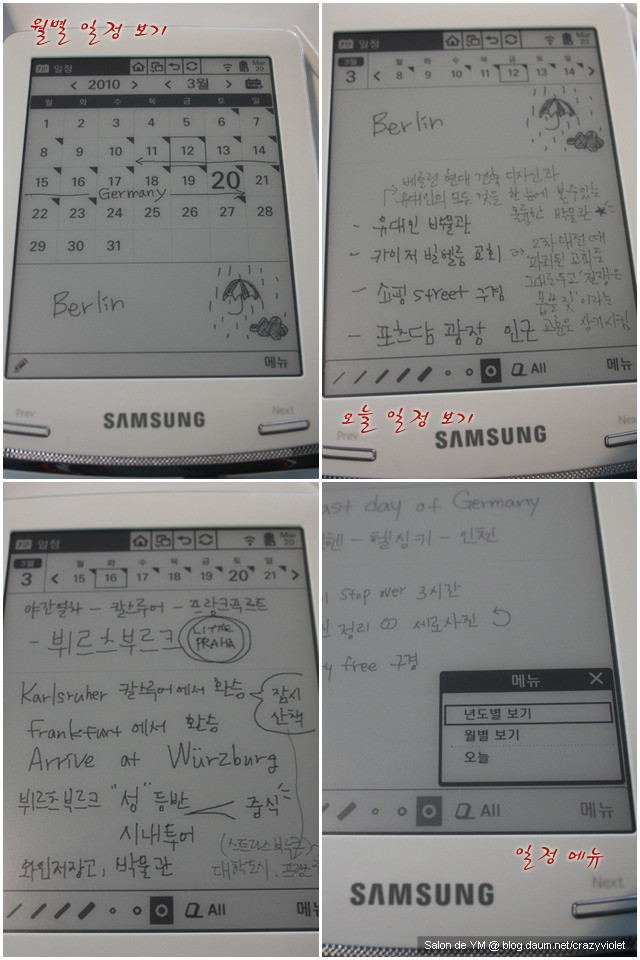 월별 일정 보기
일정
Mar 20
2010 3월
월 화 수 목 금 토 일
1 2 3 4 5 6 7
8 9 10 11 12 13 14
15 16 17 18 19 20 21
Germany
22 23 24 25 26 27 28
29 30 31
Berlin
메뉴
Prev
Next
SAMSUNG
일정
Mar 20
3월
3
월 화 수 목 금 토 일
8 9 10 11 12 13 14
Berlin
베를린 현대 건축 디자인과
유대인의 모든 것을 한눈에 볼수있는
훌륭한 박물관
- 유대인 박물관
- 카이저 빌헬름 교회
2차 대전 때
파괴된 교회를
그대로두고 '전쟁은
몹쓸 짓' 이라는
교훈을 상기시킴
- 쇼핑 street 구경
- 포츠담 광장 인근
All
메뉴
오늘 일정 보기
Prev
SAMSUNG
일정
Mar 20
3월
3
월 화 수 목 금 토 일
15 16 17 18 19 20 21
야간열차 - 칼스루어 - 프랑크푸르트
- 뷔르츠부르크
LITTLE PRAHA
Karlsruher 칼스루어에서 환승
잠시 산책
frankfurt 에서 환승
Arrive at Würzburg
뷔르츠부르크 "성" 등반
중식
시내투어
와인저장고, 박물관
대학도시.
All
메뉴
ast day of Germany
헨 - 헬싱키 - 인천
stop over 3시간
정리 세로사진
free 구경
메뉴
년도별 보기
월별 보기
오늘
All
메뉴
일정 메뉴
SAMSUNG
Next
Salon de YM @ blog.daum.net/crazyviolet